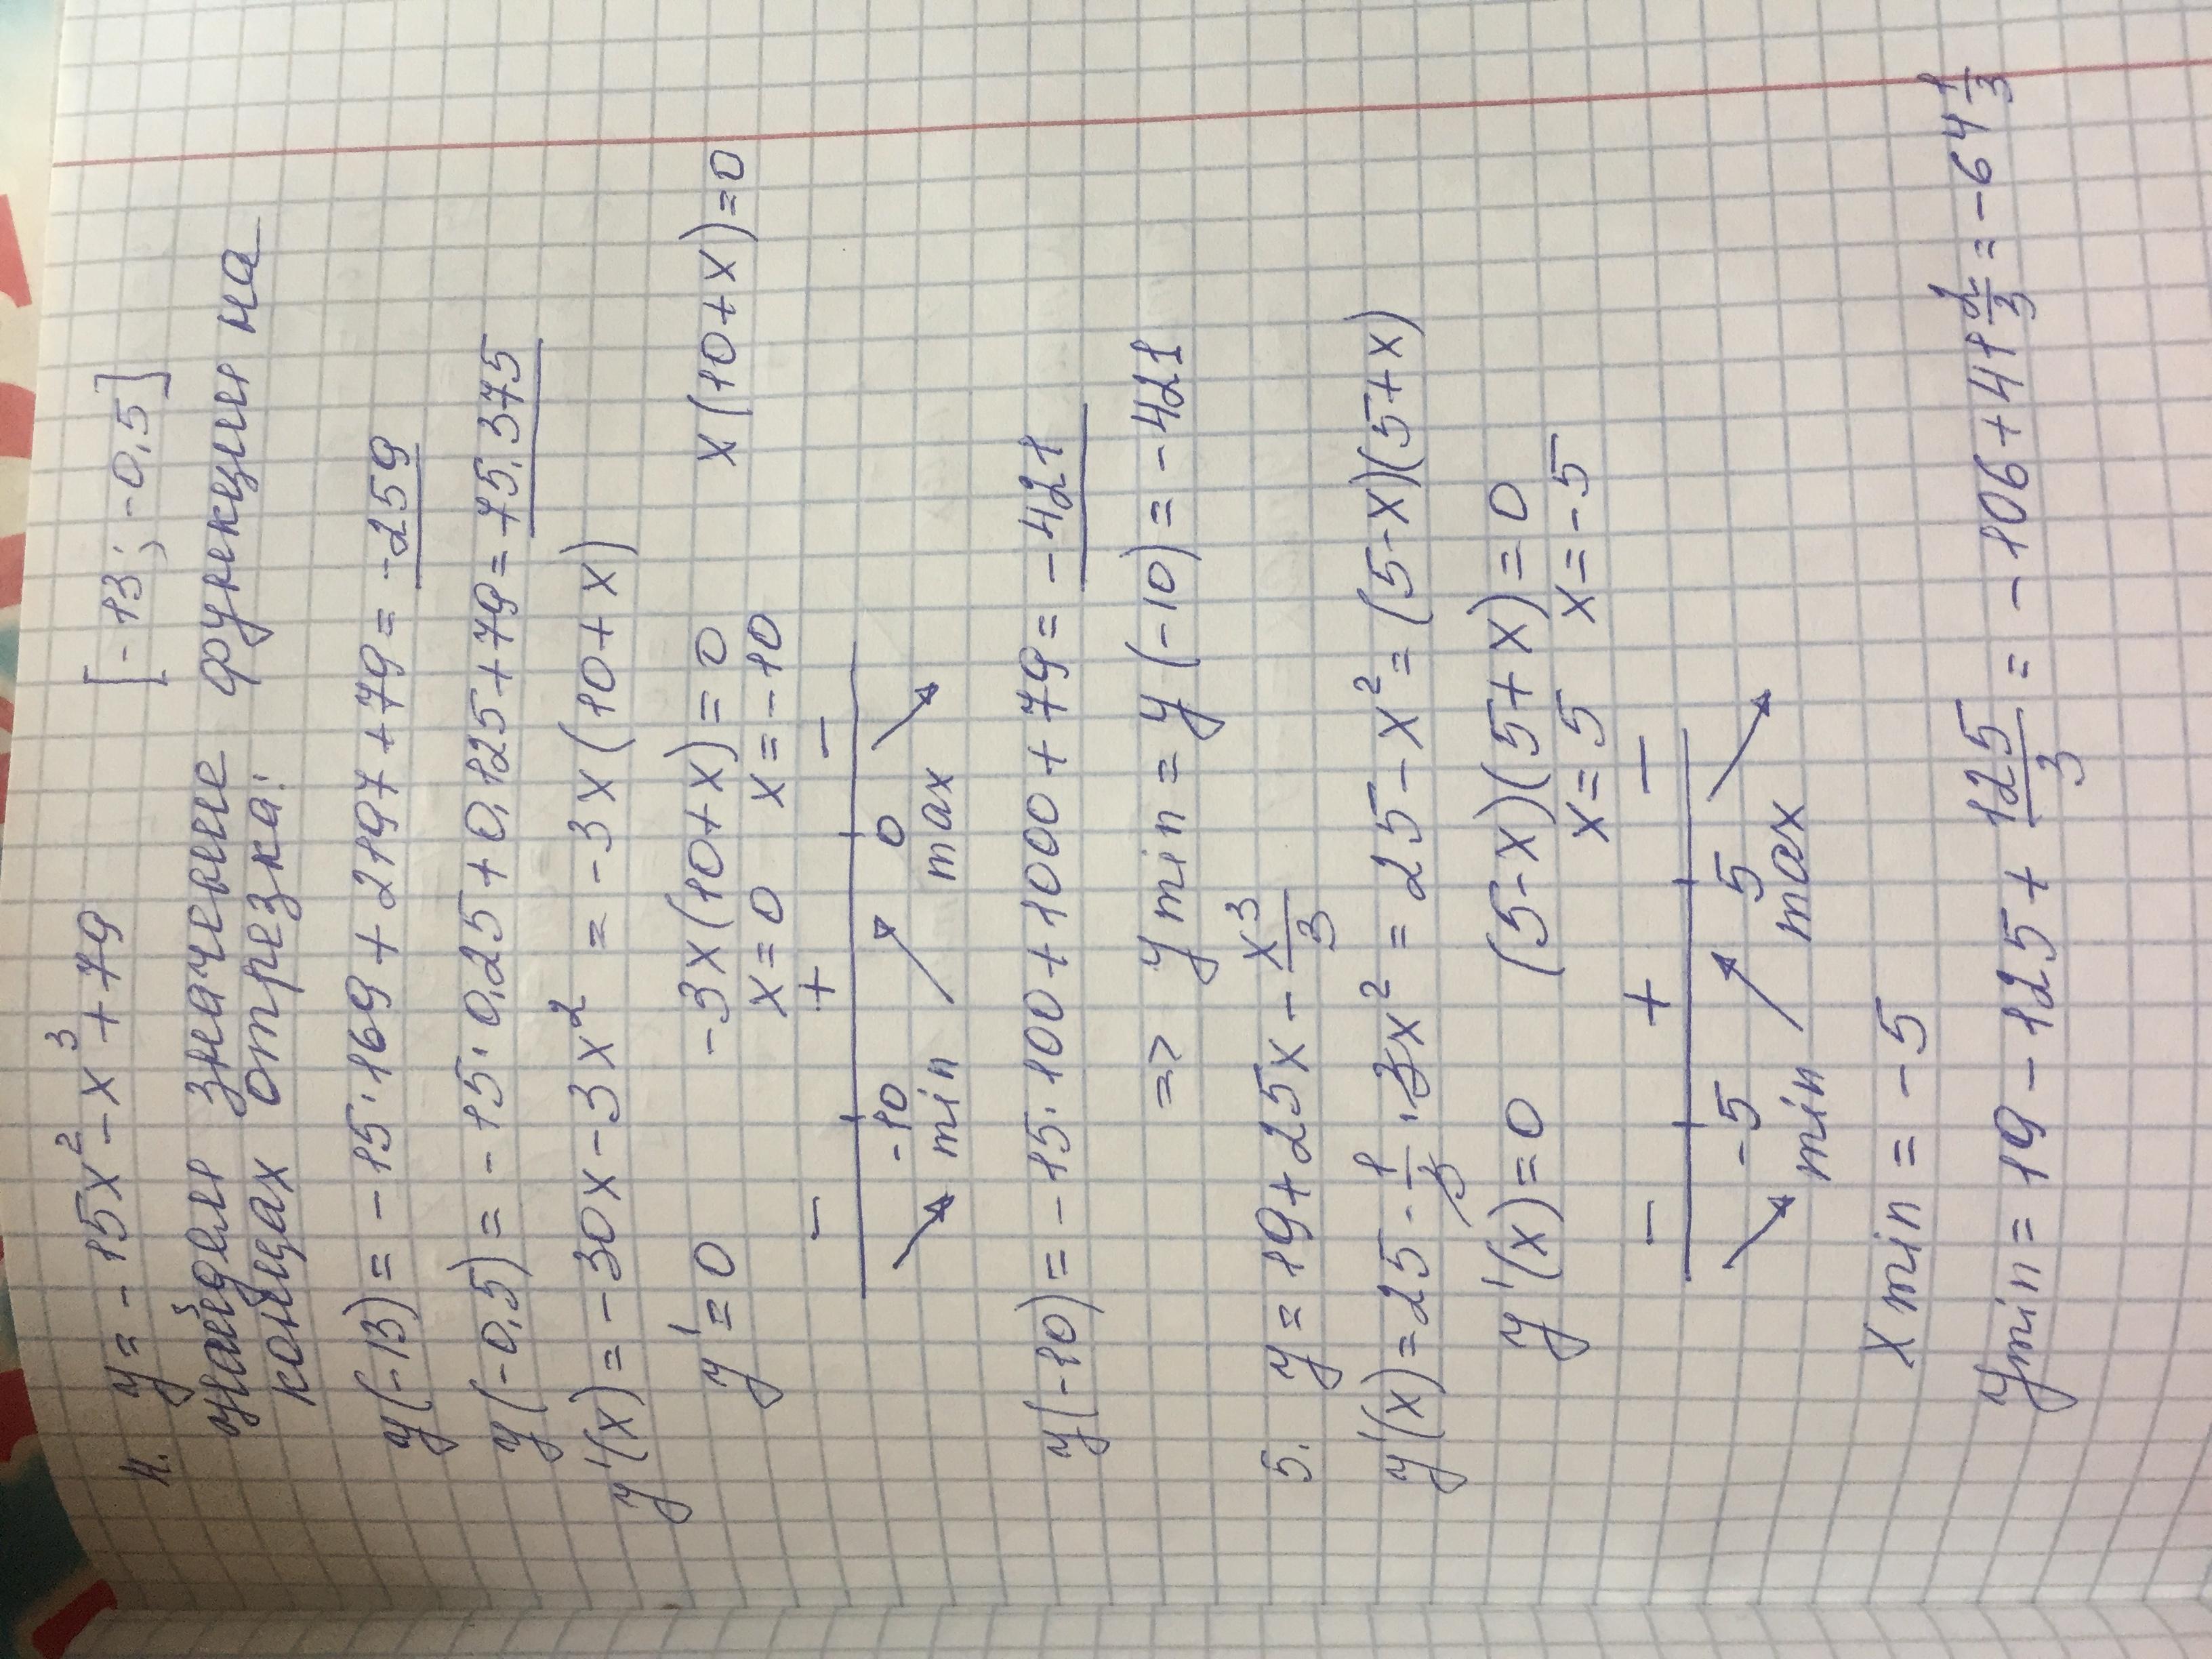 4. y = -15x² - x³ + 79 [-13; -0,5]
Найдем значение функции на
концах отрезка:
y(-13) = -15·169 + 2197 + 79 = -259
y(-0,5) = -15·0,25 + 0,125 + 79 = 75,375
y'(x) = -30x - 3x² = -3x(10+x)
y' = 0 -3x(10+x) = 0 x(10+x) = 0
x = 0 x = -10
- + -
-10 0
min max
y(-10) = -15·100 + 1000 + 79 = -421
=> y min = y(-10) = -421
5. y = 19 + 25x - x³/3
y'(x) = 25 - 1/3 · 3x² = 25 - x² = (5-x)(5+x)
y'(x) = 0 (5-x)(5+x) = 0
x = 5 x = -5
- + -
-5 5
min max
x min = -5
y min = 19 - 125 + 125/3 = -106 + 41 2/3 = -64 1/3